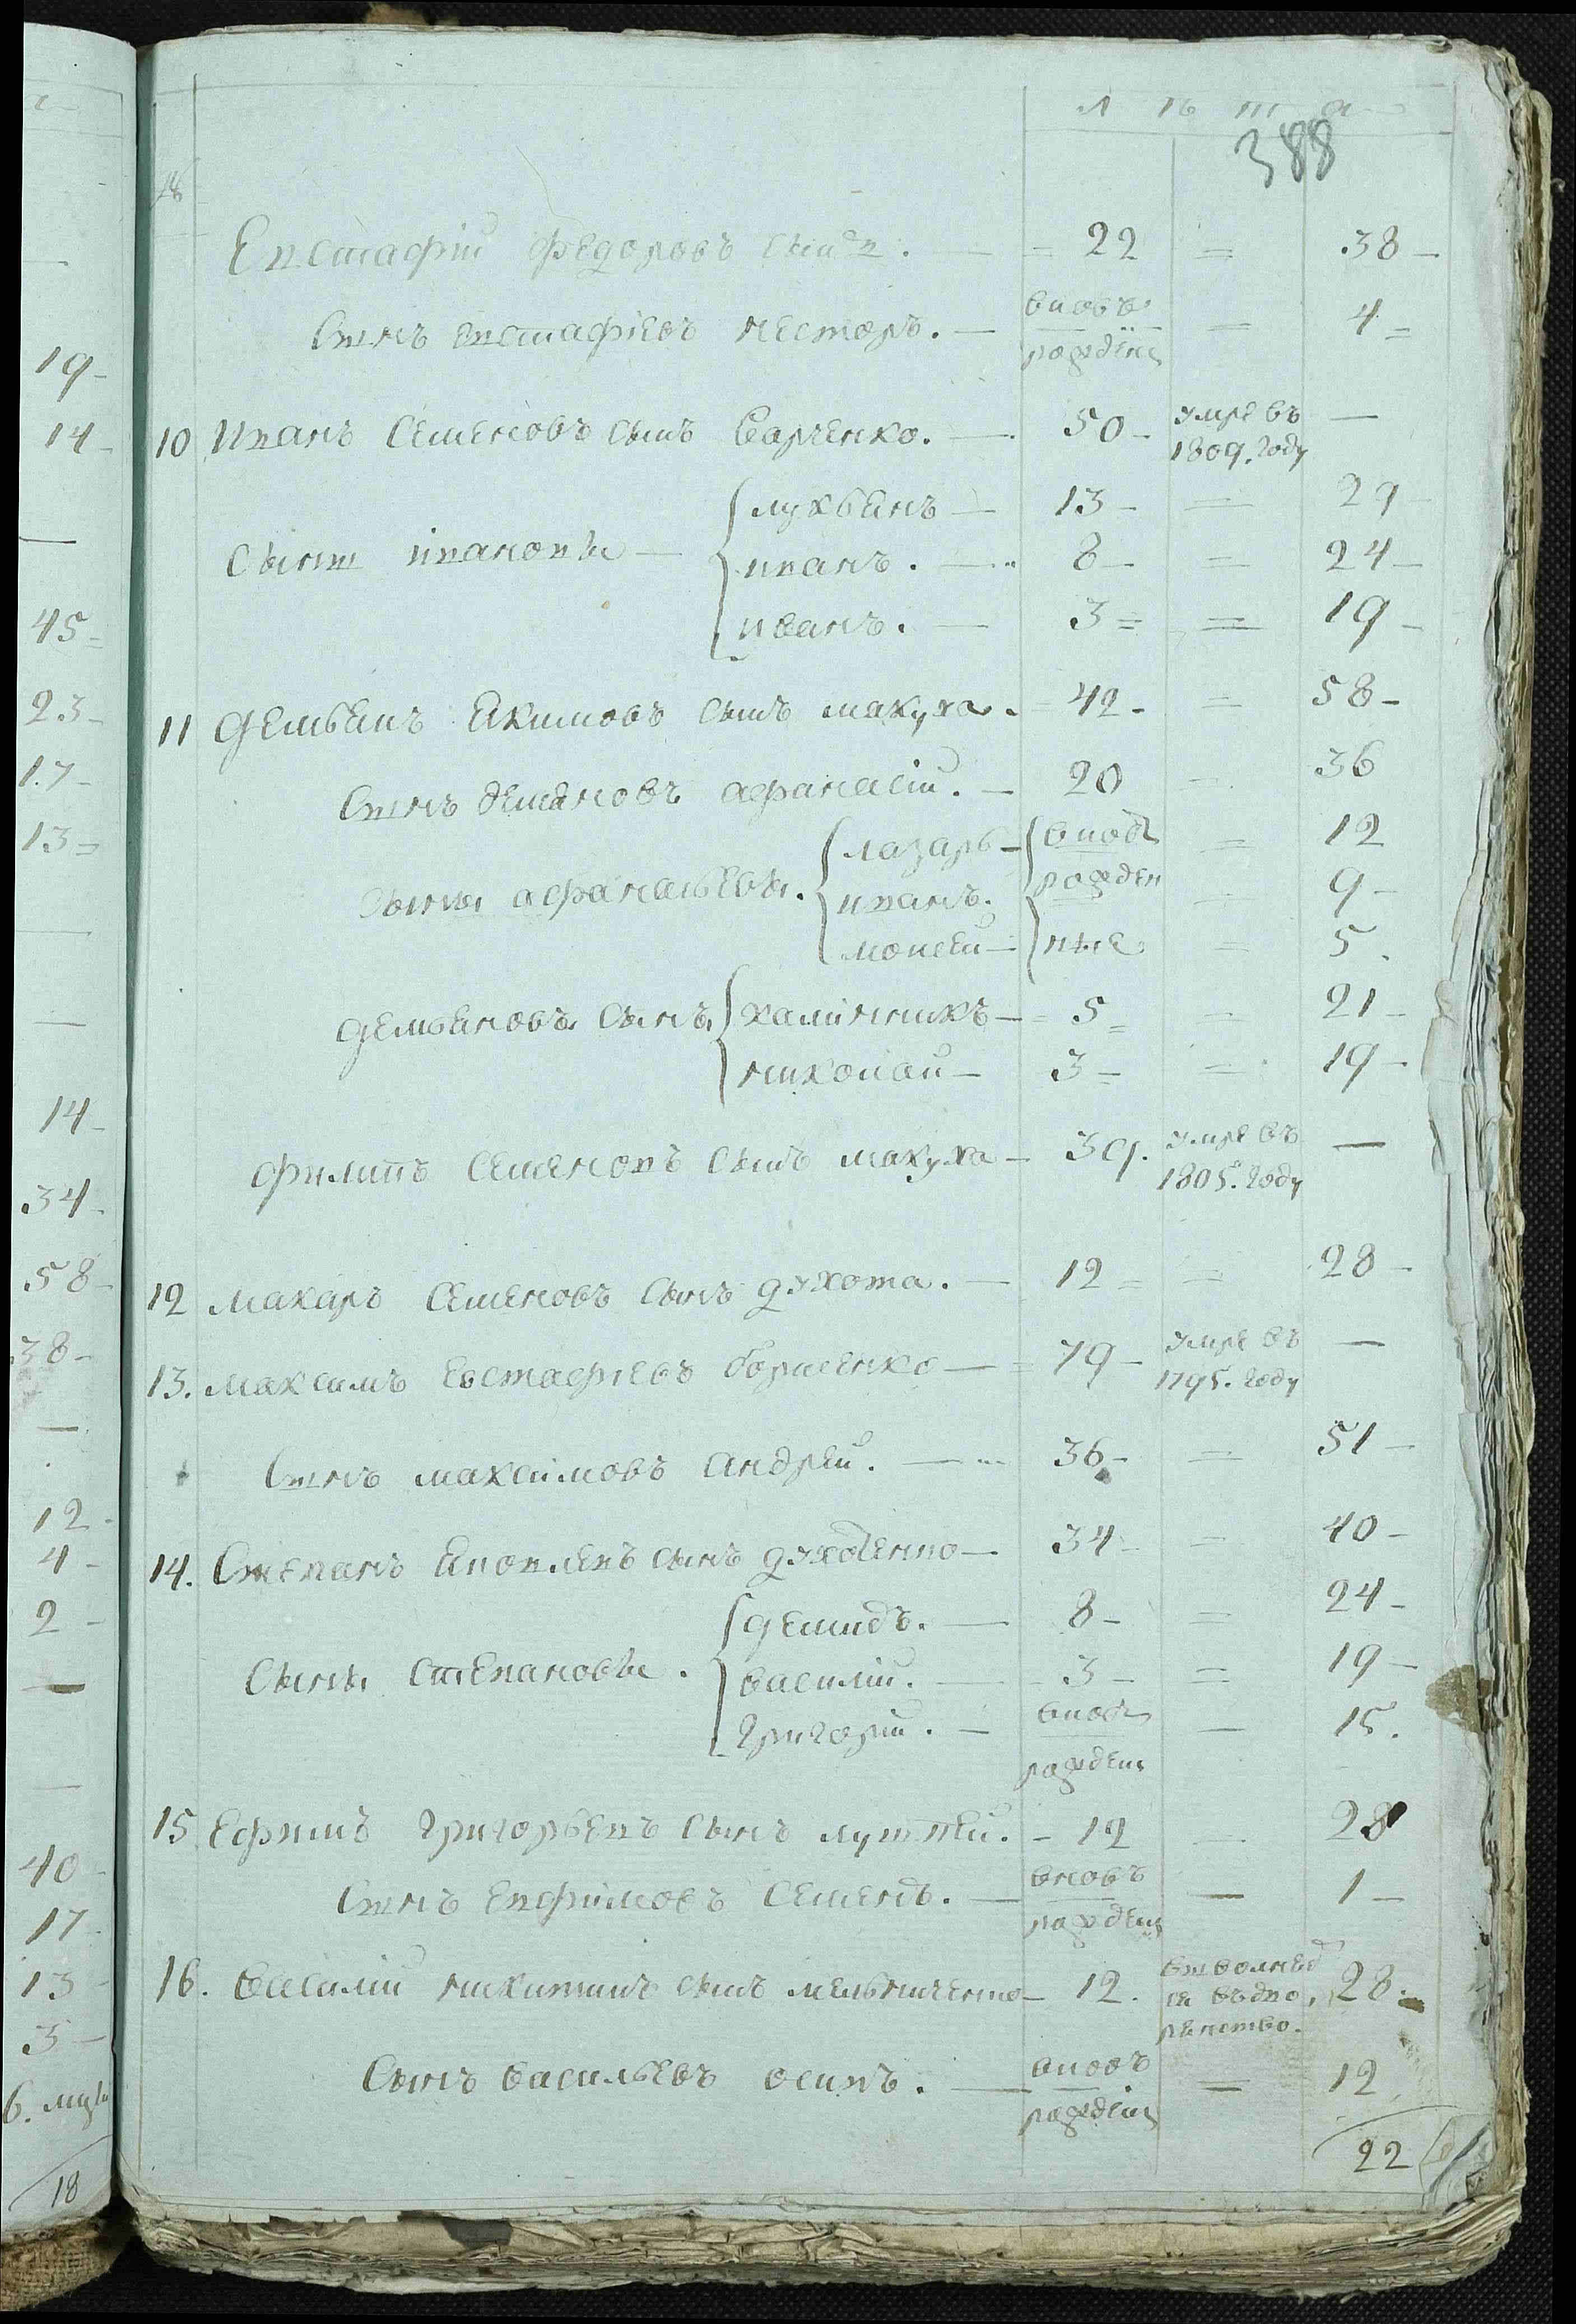 19
14
45
23
17
13
14
34
58
38
12
4
2
40
17
13
3
18
лѣта
388
Евстафій Федоровъ сынъ. 22 = 38
Сынъ евстафіевъ нестеръ. вновь рожденъ = 4
10 Иванъ Семеновъ сынъ Варченко. 50 умре въ 1809. году —
Сыны ивановы
лукьянъ 13 — 29
иванъ. 8 = 24
иванъ. 3 = 19
11 Демьянъ Якимовъ сынъ макуха. 42 = 58
Сынъ демяновъ афанасій. 20 — 36
Сыны афанасьевы.
лазарь = 12
иванъ. = 9
мосей = 5
вновь рожденные
демьяновы сыны
калинникъ 5 = 21
николай 3 = 19
Филипъ Семеновъ сынъ макуха 39. умре въ 1805. году —
12 макаръ Семеновъ сынъ духота. 12 = 28
13. максимъ Евстафіевъ борисенко 79 умре въ 1795. году —
Сынъ максимовъ андрей. 36 = 51
14. Степанъ Яковлевъ сынъ 34 = 40
Сыны Степановы.
демидъ. 8 = 24
василій. 3 = 19
григорій. вновь рожденъ — 15.
15 Ефимъ григорьевъ сынъ 12 — 28
Сынъ Евфимовъ Семенъ. вновь рожденъ — 1
16. Василій никитинъ сынъ мельниченко 12. 28.
Сынъ васильевъ осипъ. вновь рожденъ = 12
22